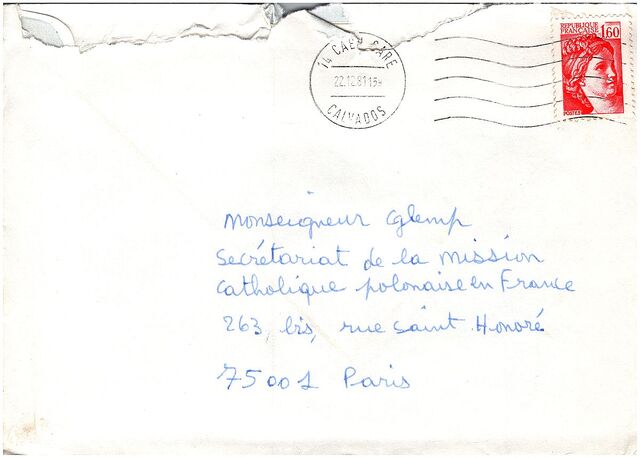 REPUBLIQUE
FRANÇAISE 1,60
POSTES
14 CAEN GARE
22.12.81 15H
CALVADOS
Monseigneur Cglemp
Secrétariat de la Mission
Catholique polonaise en France
263, bis, rue Saint Honoré
75001 Paris